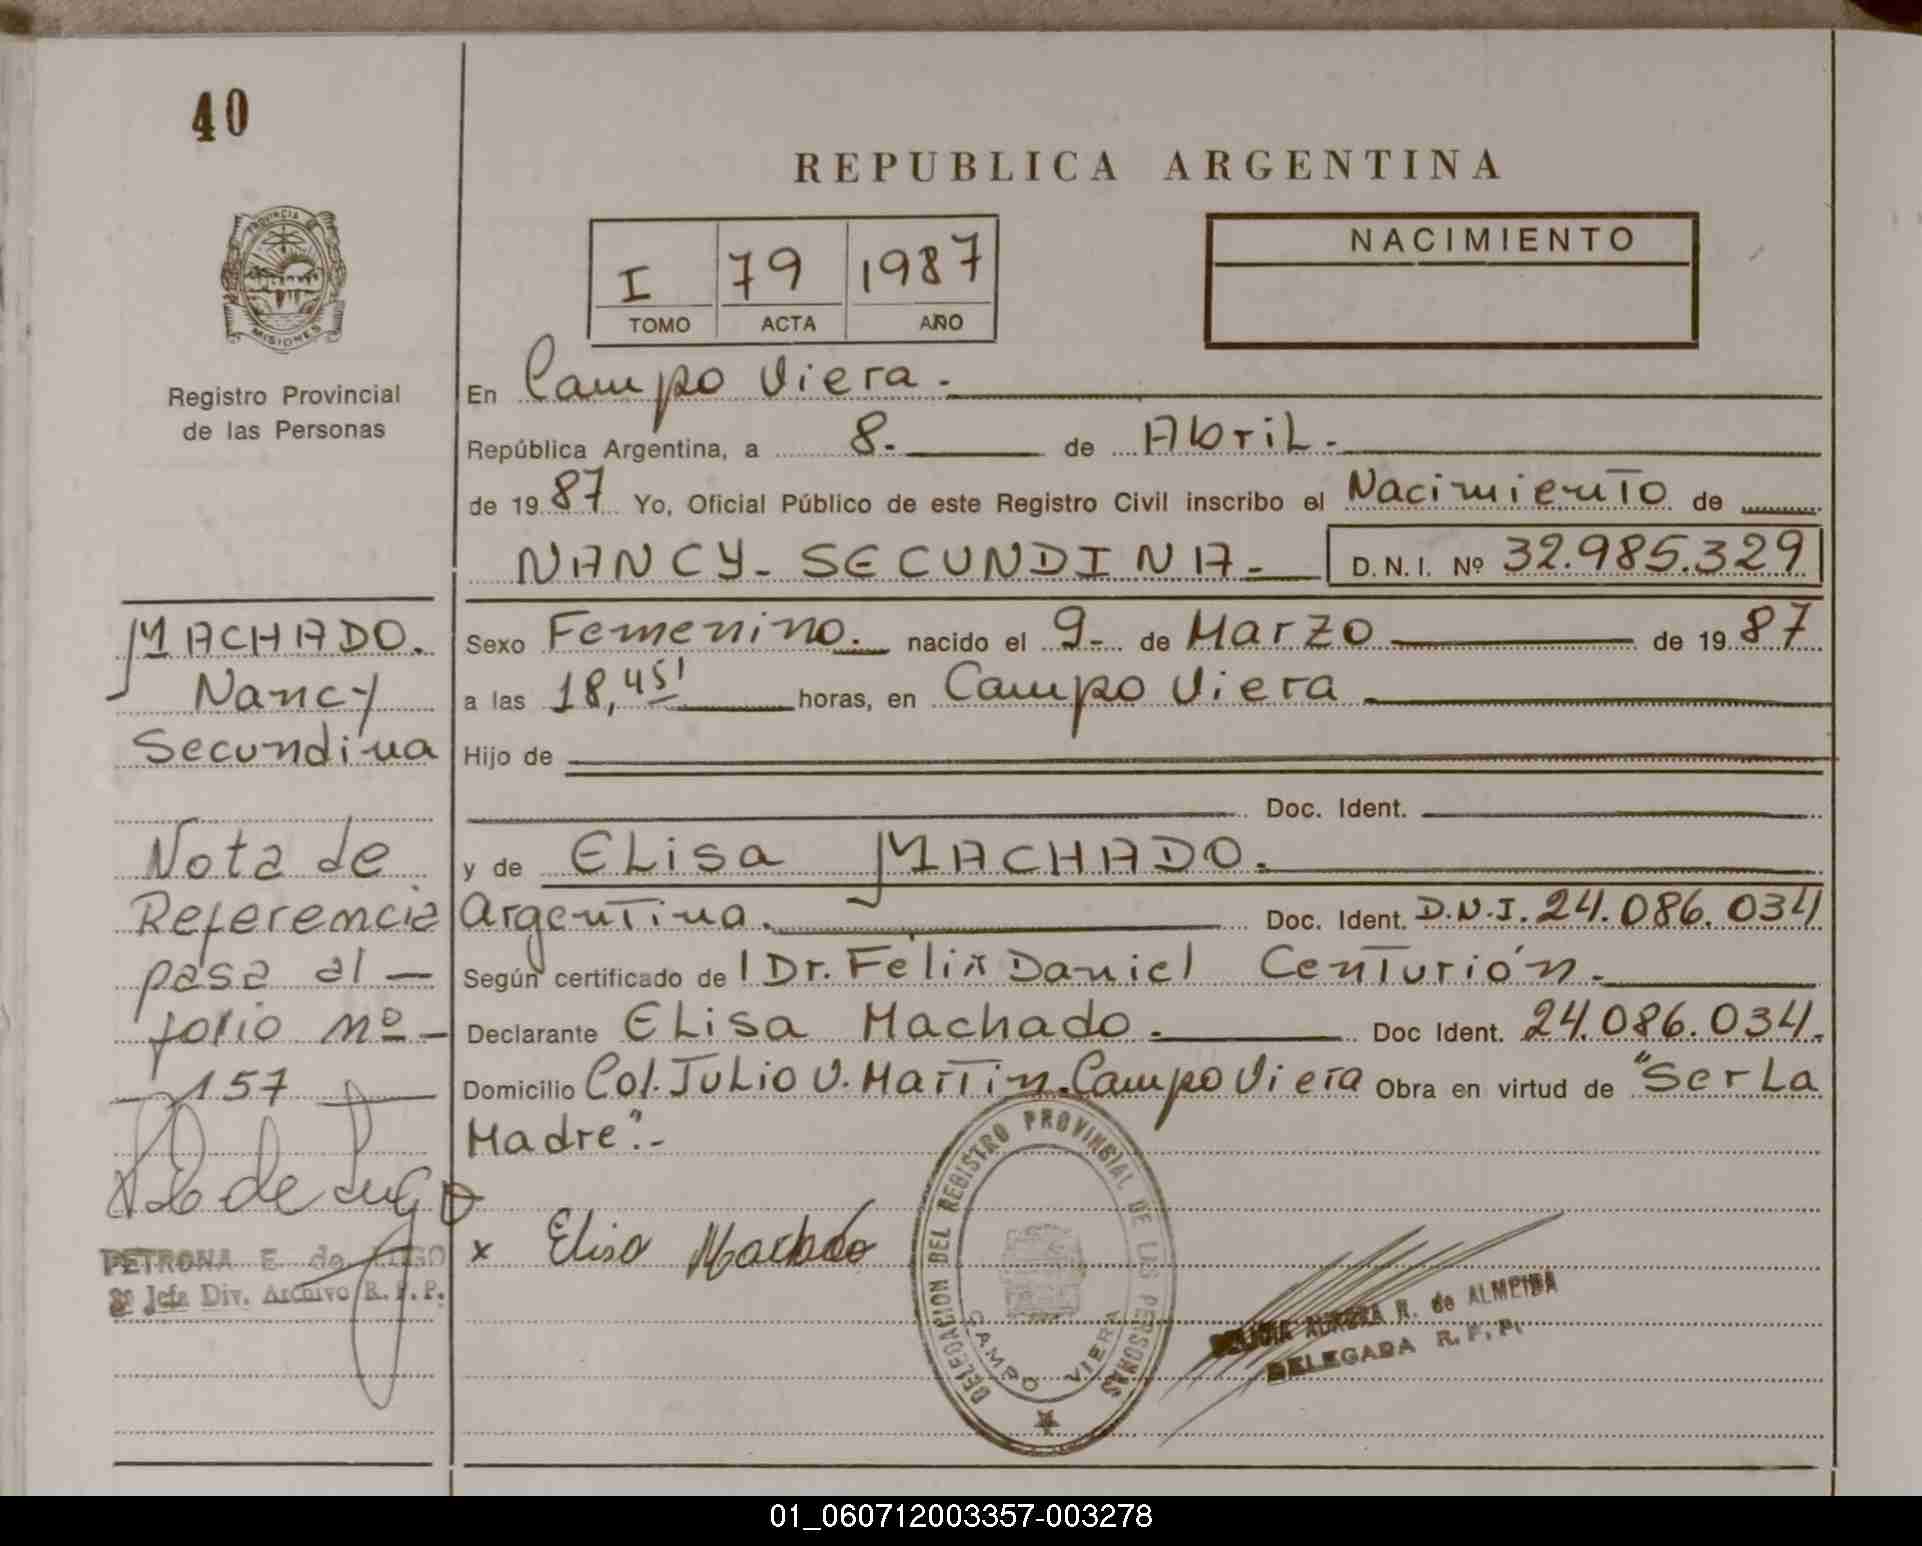 40
REPUBLICA ARGENTINA
PROVINCIA DE
MISIONES
Registro Provincial
de las Personas
I 79 1987
TOMO ACTA AÑO
NACIMIENTO
En Campo Viera.
República Argentina, a 8. de Abril.
de 19 87 Yo, Oficial Público de este Registro Civil inscribo el Nacimiento de
NANCY - SECUNDINA - D.N.I. Nº 32.985.329
Sexo Femenino. nacido el 9- de Marzo de 19 87
a las 18,45' horas, en Campo Viera
Hijo de
Doc. Ident.
y de ELisa MACHADO.
Argentina. Doc. Ident. D.N.I. 24.086.034
Según certificado de Dr. Félix Daniel Centurión.
Declarante ELisa Machado. Doc Ident. 24.086.034.
Domicilio Col. Julio U. Martin. Campo Viera Obra en virtud de "Ser La
Madre".-
x Elisa Machado
DELEGACION DEL REGISTRO PROVINCIAL DE LAS PERSONAS
CAMPO VIERA
AURORA R. de ALMEIDA
DELEGADA R. P. P.
MACHADO.
Nancy
Secundina
Nota de
Referencia
pasa al —
folio nº —
— 157 —
de Lugo
PETRONA E. de LUGO
Jefa Div. Archivo R. P. P.
01_060712003357-003278